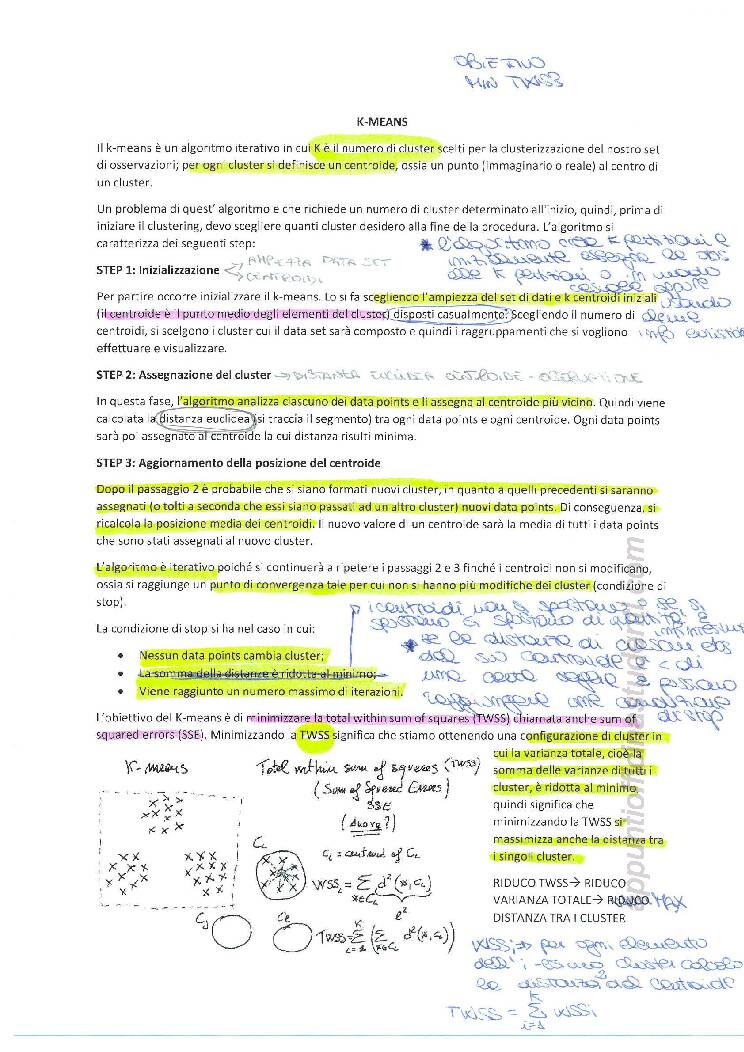 OBIETTIVO
MIN TWSS
K-MEANS
Il k-means è un algoritmo iterativo in cui K è il numero di cluster scelti per la clusterizzazione del nostro set
di osservazioni; per ogni cluster si definisce un centroide, ossia un punto (immaginario o reale) al centro di
un cluster.
Un problema di quest' algoritmo e che richiede un numero di cluster determinato all'inizio, quindi, prima di
iniziare il clustering, devo scegliere quanti cluster desidero alla fine della procedura. L'algoritmo si
caratterizza dei seguenti step:
* l'algoritmo crea k partizioni e
inizialmente assegna le oss
alle k partizioni o in modo
casuale oppure
usando
alcune
info esistenti
STEP 1: Inizializzazione
AMPIEZZA DATA SET
CENTROIDI
Per partire occorre inizializzare il k-means. Lo si fa scegliendo l'ampiezza del set di dati e k centroidi iniziali
(il centroide è il punto medio degli elementi del cluster) disposti casualmente. Scegliendo il numero di
centroidi, si scelgono i cluster cui il data set sarà composto e quindi i raggruppamenti che si vogliono
effettuare e visualizzare.
STEP 2: Assegnazione del cluster → DISTANZA EUCLIDEA CENTROIDE - OSSERVAZIONE
In questa fase, l'algoritmo analizza ciascuno dei data points e li assegna al centroide più vicino. Quindi viene
calcolata la distanza euclidea (si traccia il segmento) tra ogni data points e ogni centroide. Ogni data points
sarà poi assegnato al centroide la cui distanza risulti minima.
STEP 3: Aggiornamento della posizione del centroide
Dopo il passaggio 2 è probabile che si siano formati nuovi cluster, in quanto a quelli precedenti si saranno
assegnati (o tolti a seconda che essi siano passati ad un altro cluster) nuovi data points. Di conseguenza, si
ricalcola la posizione media dei centroidi. Il nuovo valore di un centroide sarà la media di tutti i data points
che sono stati assegnati al nuovo cluster.
L'algoritmo è iterativo poiché si continuerà a ripetere i passaggi 2 e 3 finché i centroidi non si modificano,
ossia si raggiunge un punto di convergenza tale per cui non si hanno più modifiche dei cluster (condizione di
stop).
i centroidi non si spostano o se si
spostano si spostano di quantità
* se le distanze di ciascun oss
dal suo centroide è < di
una certa soglia e possiamo
La condizione di stop si ha nel caso in cui:
• Nessun data points cambia cluster;
• La somma della distanze è ridotta al minimo;
• Viene raggiunto un numero massimo di iterazioni.
L'obiettivo del K-means è di minimizzare la total within sum of squares (TWSS) chiamata anche sum of
squared errors (SSE). Minimizzando a TWSS significa che stiamo ottenendo una configurazione di cluster in
cui la varianza totale, cioè la
somma delle varianze di tutti i
cluster, è ridotta al minimo,
quindi significa che
minimizzando la TWSS si
massimizza anche la distanza tra
i singoli cluster.
RIDUCO TWSS→ RIDUCO
VARIANZA TOTALE→ RIDUCO MAX
DISTANZA TRA I CLUSTER
K-means
Total within sum of squares (TWSS)
(Sum of Squared Errors)
SSE
Ci = centroid of Ci
WSSi = Σ d²(x, ci)
x∈Ci
TWSS = Σ (Σ d²(x, ci)
WSSi → per ogni elemento
dell' i-esimo cluster calcolo
la distanza² dal centroide
TWSS = Σ WSSi
i=1
appuntiofficinastudenti.com